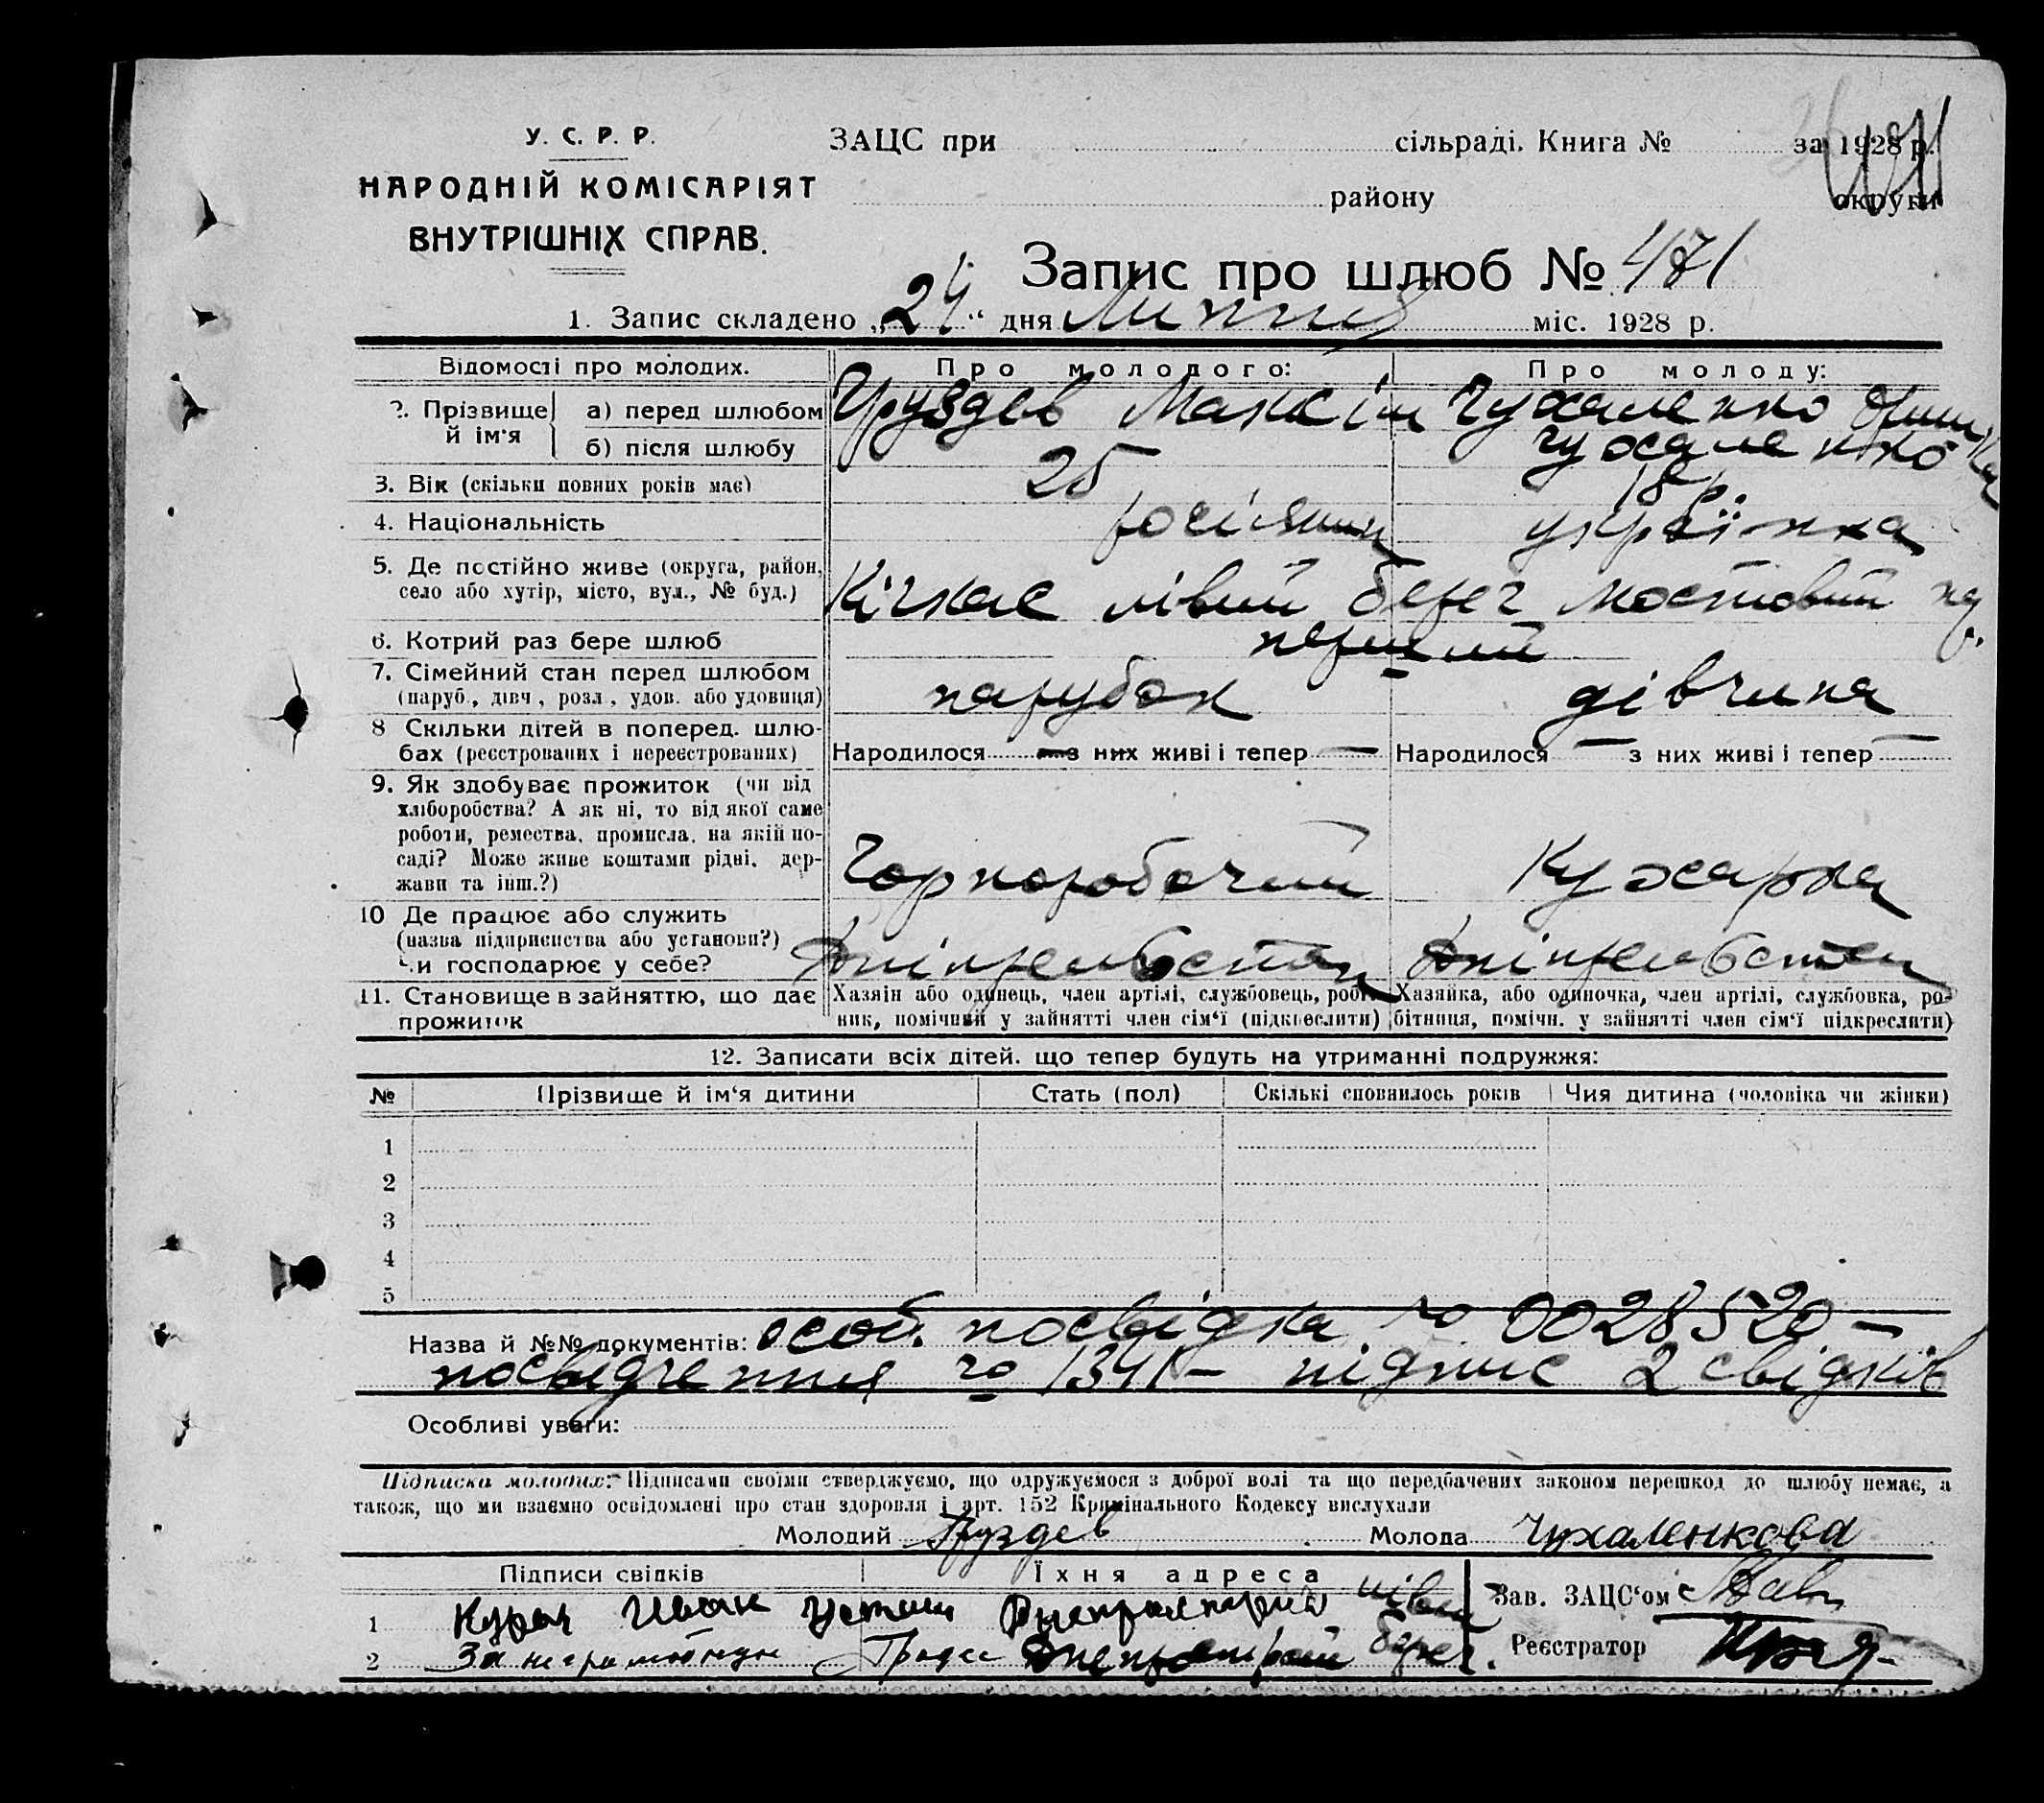 У. С. Р. Р.
НАРОДНІЙ КОМІСАРІЯТ
ВНУТРІШНІХ СПРАВ.
ЗАЦС при сільраді. Книга № за 1928 р.
району округи
Запис про шлюб № 471
1. Запис складено „24“ дня Липня міс. 1928 р.
Відомості про молодих. Про молодого: Про молоду:
2. Прізвище й ім'я а) перед шлюбом Груздев Максім Чухаленко
б) після шлюбу Чухаленко
3. Вік (скільки повних років має) 25 18 р.
4. Національність росіянин українка
5. Де постійно живе (округа, район, село або хутір, місто, вул., № буд.) Кічкас лівий берег мостовий
6. Котрий раз бере шлюб перший
7. Сімейний стан перед шлюбом (паруб., дівч., розл., удов. або удовиця) парубок дівчина
8 Скільки дітей в поперед. шлюбах (реєстрованих і нереєстрованих) Народилося — з них живі і тепер — Народилося — з них живі і тепер —
9. Як здобуває прожиток (чи від хліборобства? А як ні, то від якої саме роботи, ремества, промисла, на якій посаді? Може живе коштами рідні, держави та інш.?) Чорноробочий Кухарка
10 Де працює або служить (назва підприємства або установи?) Чи господарює у себе?
11. Становище в зайняттю, що дає прожиток Хазяїн або одинець, член артілі, службовець, робітник, помічний у зайнятті член сім'ї (підкреслити) Хазяйка, або одиночка, член артілі, службовка, робітниця, помічн. у зайнятті член сім'ї підкреслити)
12. Записати всіх дітей, що тепер будуть на утриманні подружжя:
№ Прізвище й ім'я дитини Стать (пол) Скількі сповнилось років Чия дитина (чоловіка чи жінки)
1
2
3
4
5
Назва й №№ документів: особ. посвідка № 0028520 —
посвідчення № 1341 — підпис 2 свідків
Особливі уваги:
Підписка молодих: Підписами своїми стверджуємо, що одружуємося з доброї волі та що передбачених законом перешкод до шлюбу немає, а
також, що ми взаємно освідомлені про стан здоровля і арт. 152 Кримінального Кодексу вислухали
Молодий Груздев Молода Чухаленкова
Підписи свідків Їхня адреса
Зав. ЗАЦС'ом
1 Иван
Реєстратор
2 За неграмотную